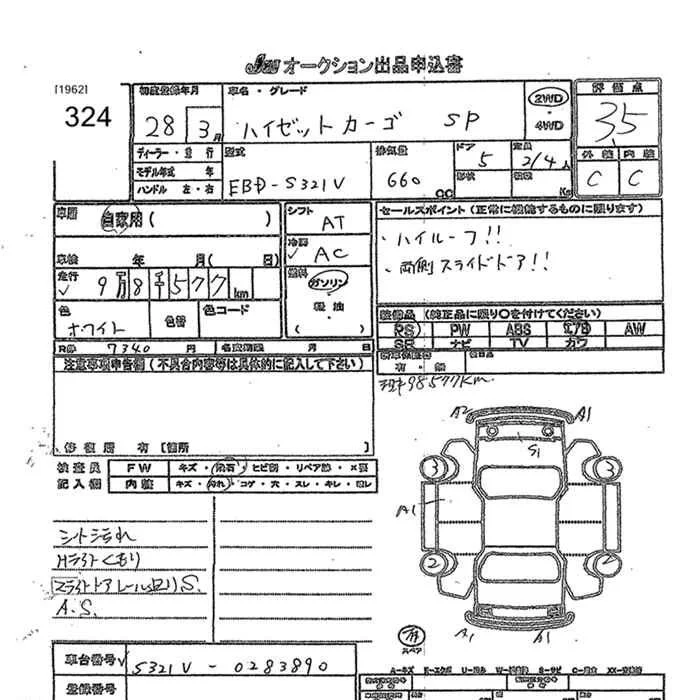 JAW オークション出品申込書
[1962]
324
初度登録年月
28 3月
車名・グレード
ハイゼットカーゴ SP
2WD
・
4WD
評価点
3.5
外装 内装
C C
ディーラー・並行
モデル年式 年
ハンドル 左・右
型式
EBD-S321V
排気量
660 CC
ドア
5
形状
定員
2/4人
積載 Kg
車歴
自家用( )
車検 年 月( 日)
走行
9万8千577km
色
ホワイト
色替
色コード
R券 7340 円
名変期限 月 日
シフト
AT
冷房
AC
燃料
ガソリン
・
軽油
( )
セールスポイント(正常に機能するものに限ります)
・ハイルーフ!!
・両側スライドドア!!
装備品(純正品に限り○を付けてください)
PS PW ABS エアB AW
SR ナビ TV カワ
新車保証書
有・無
後日品
現中98577km
注意事項申告欄(不具合内容等は具体的に記入して下さい)
修復歴 有【箇所 】
検査員
記入欄
FW キズ・飛石・ヒビ割・リペア跡・X要
内装 キズ・汚れ・コゲ・穴・スレ・キレ・臭レ
シート汚れ
Hライトくもり
スライドドアレール周りS.
A.S.
A2 A1
S1
3 3
A1
2 2
有
スペア
A1 A1
車台番号
S321V-0283890
登録番号
A-キズ E-エクボ U-凹み W-補修跡 S-サビ C-腐食 XX-交換済